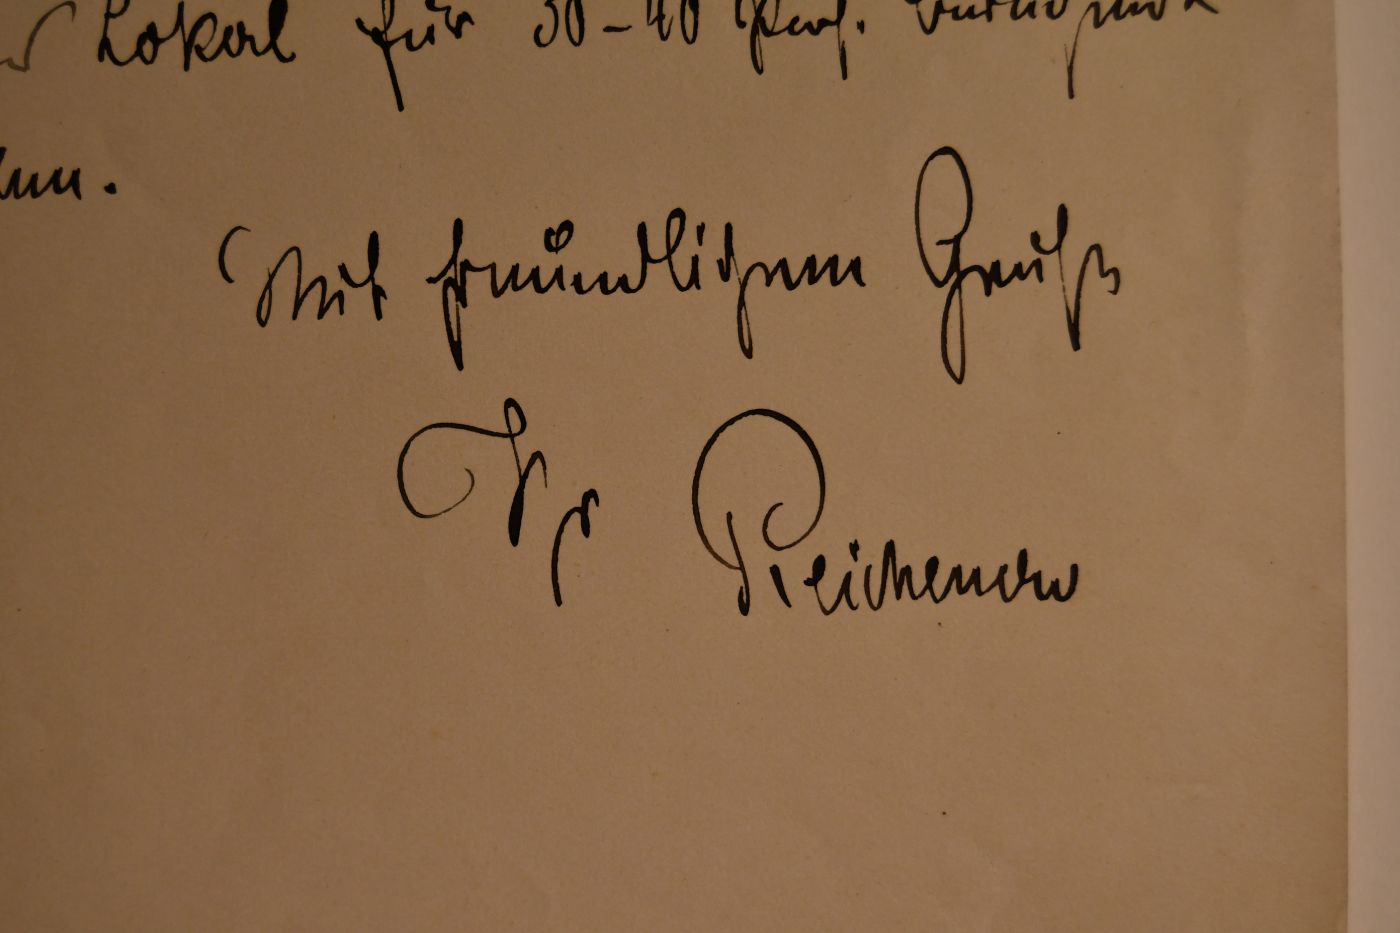 Lokal für 30-40 Pers.
Mit freundlichem Gruß
Ihr Reichenow